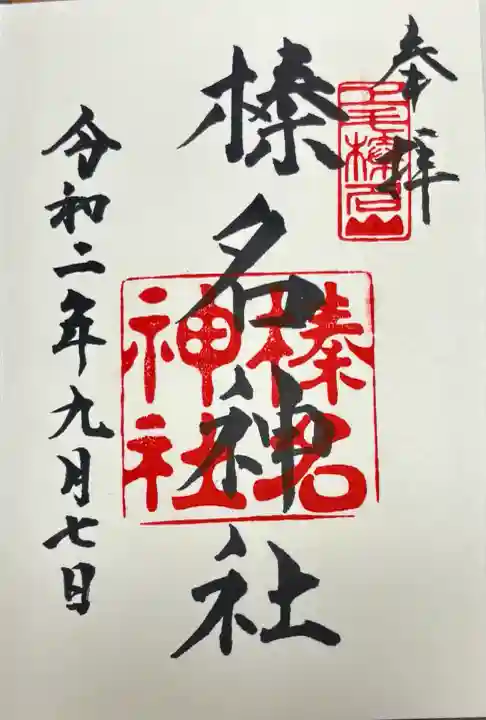 奉拝
榛名神社
榛名
神社
令和二年九月七日